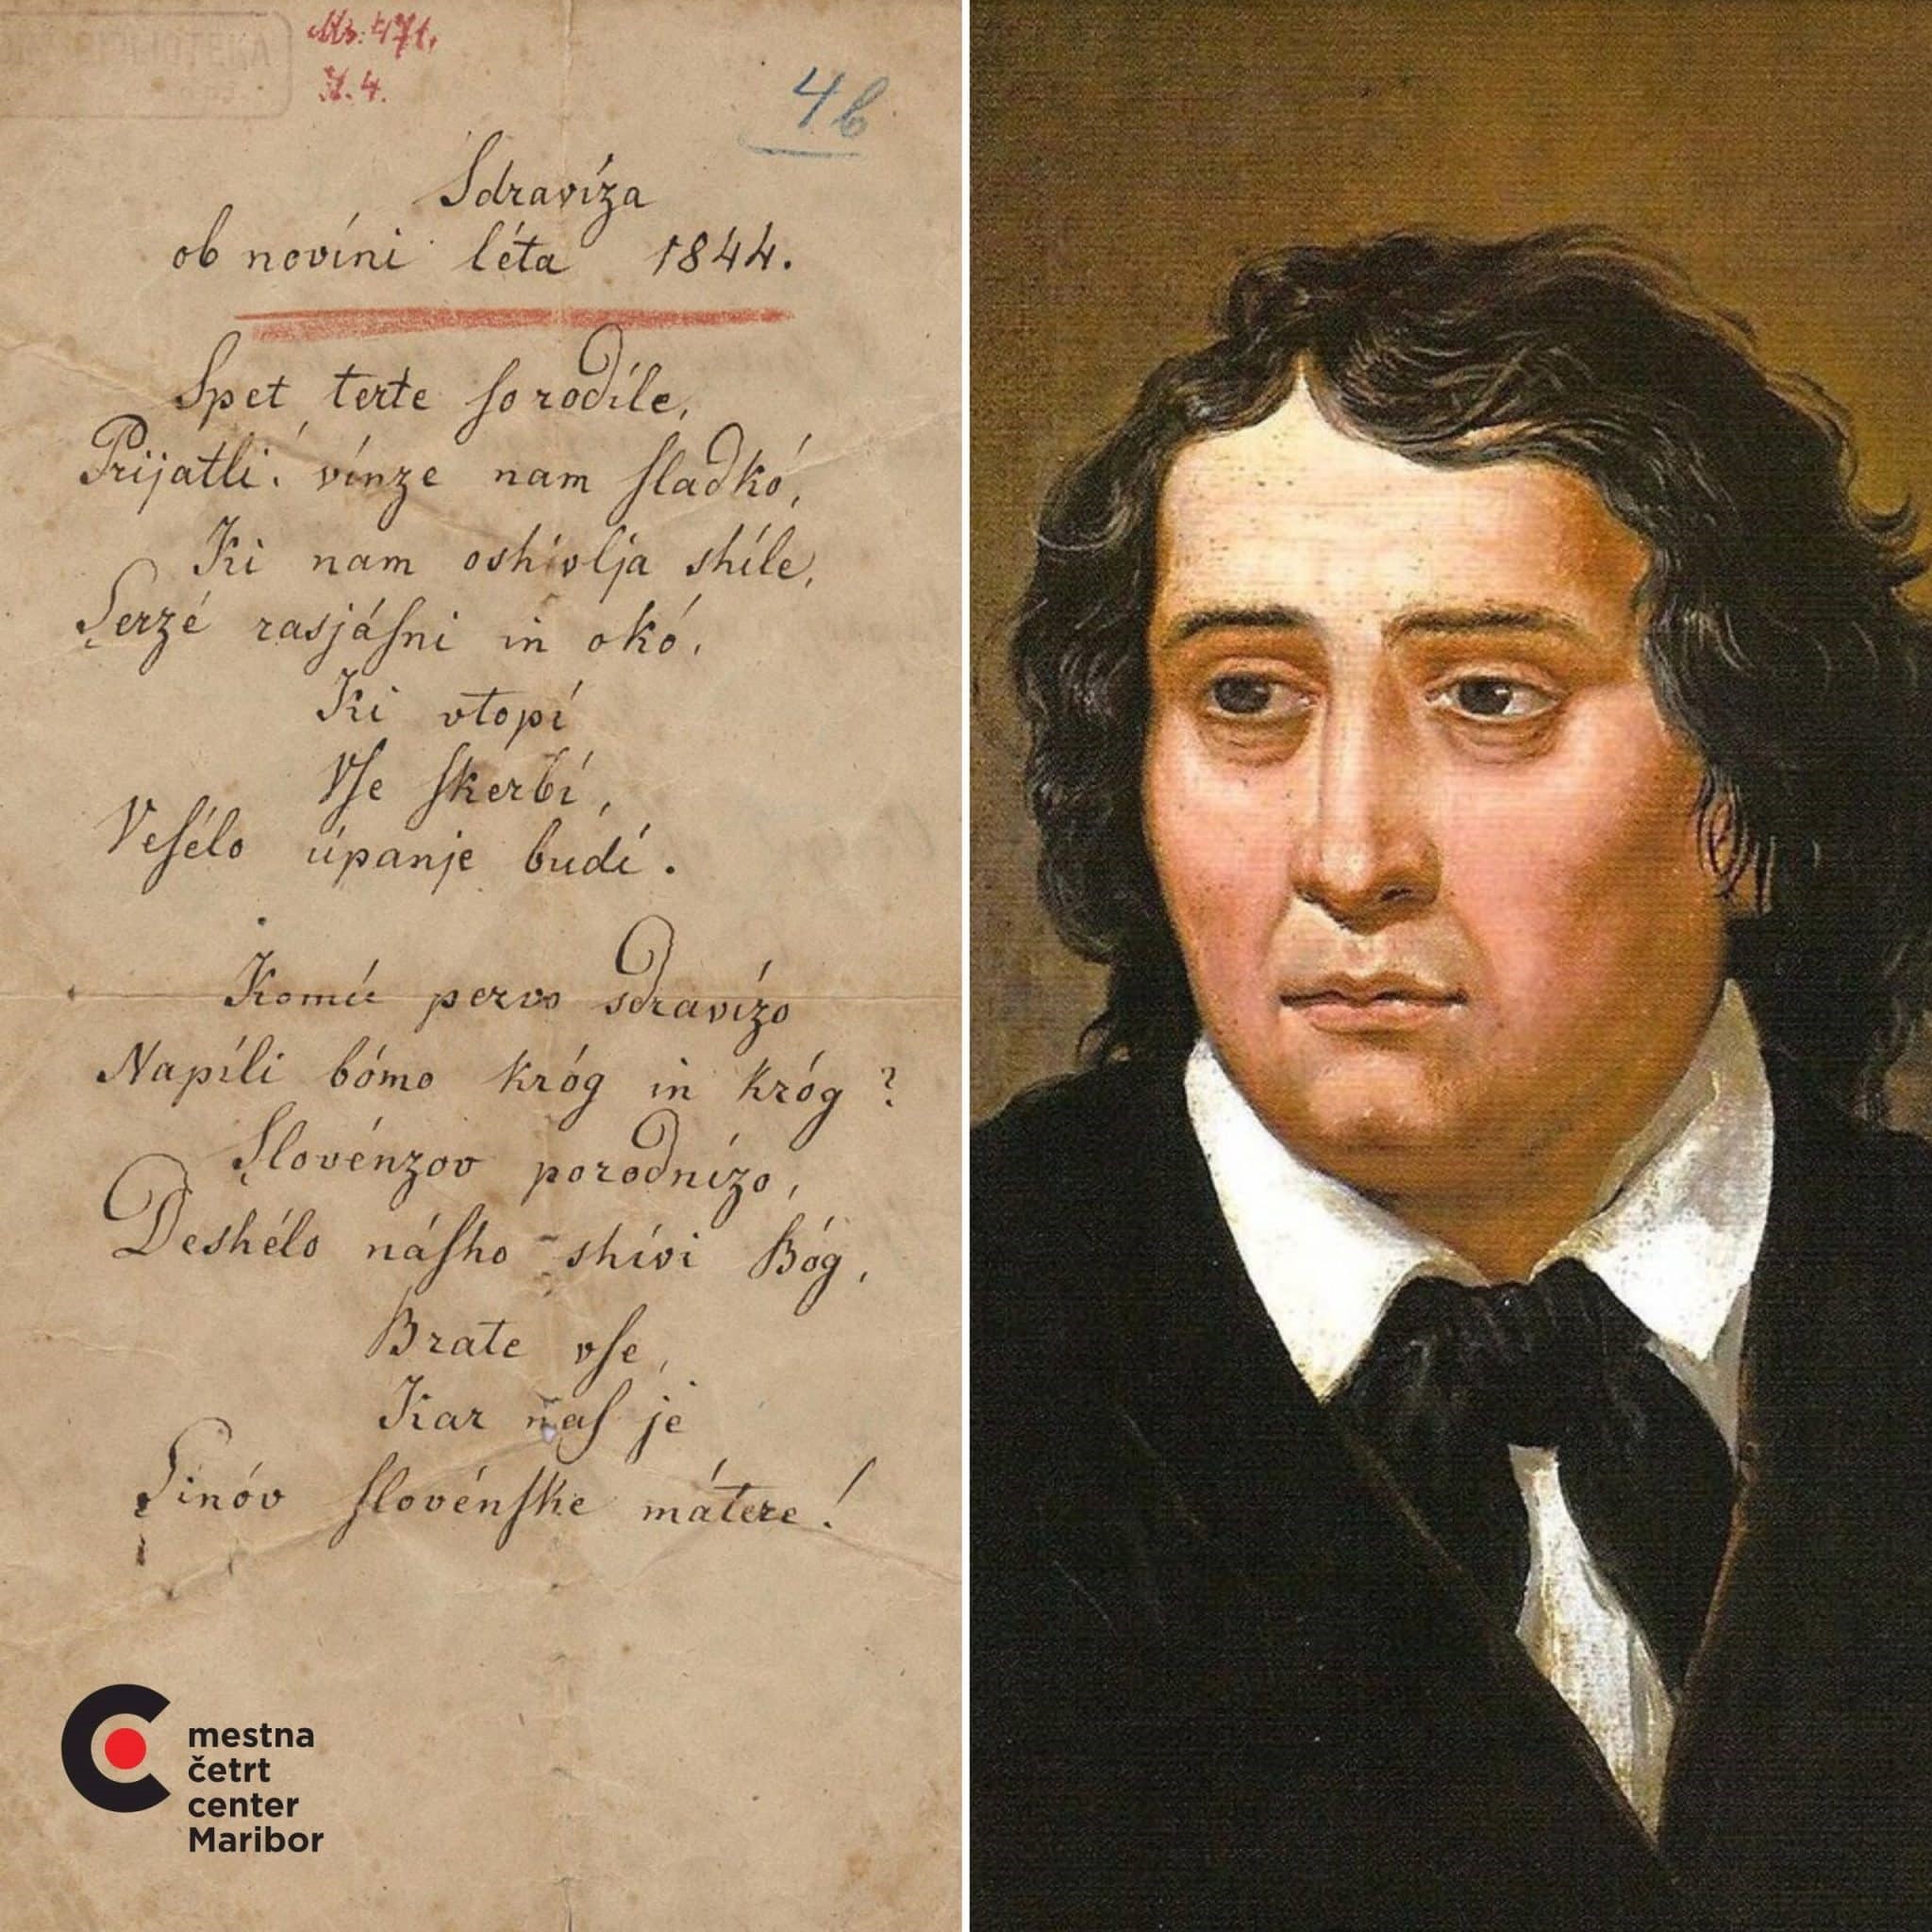 BIBLIOTEKA
Ms. 471,
4.
4b
Sdravíza
ob novíni léta 1844.
Spet terte ſo rodíle,
Prijatli! vínze nam ſladkó,
Ki nam oshívlja shíle,
Serzé rasjáſni in okó,
Ki vtopí
Vſe ſkerbí,
Veſélo úpanje budí.
Komú pervo sdravízo
Napíli bómo króg in króg?
Slovénzov porodnízo,
Deshélo náſho shívi Bóg,
Brate vſe,
Kar naſ je
Sinóv ſlovénſke mátere!
mestna
četrt
center
Maribor